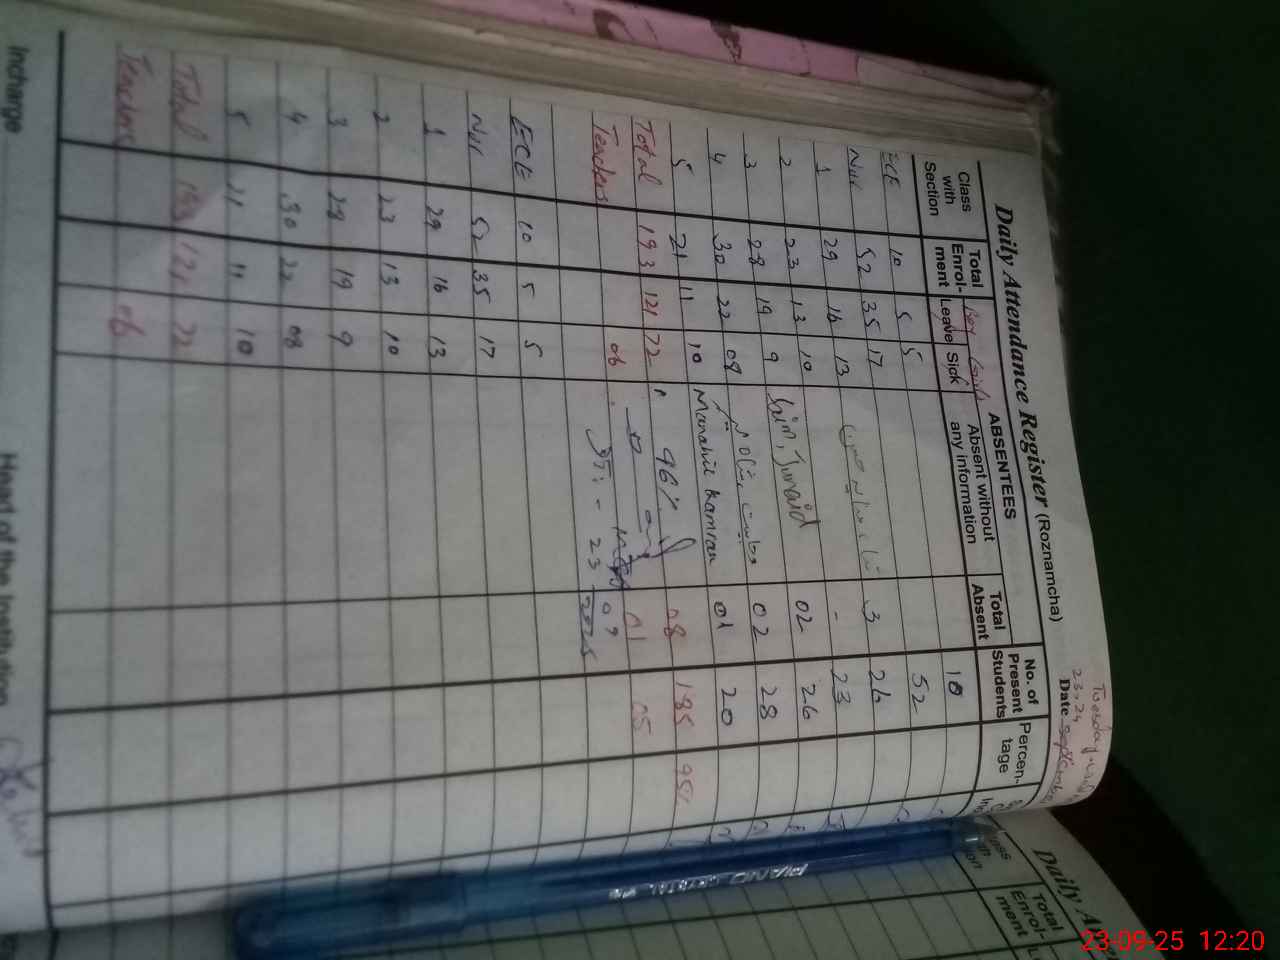 Daily Attendance Register (Roznamcha)
Tuesday
23, 24
Date September
Class with Section Total Enrol-ment Leave Sick ABSENTEES Absent without any information Total Absent No. of Present Students Percen-tage
Boy Girls
ECE 10 5 5 10
Nur 52 35 17 52
1 29 16 13 3 26
2 23 13 10 - 23
3 28 19 9 Junaid 02 26
4 30 22 08 02 28
5 21 11 10 Manahil Kamran 01 20
Total 193 121 72 96% 08 185 95%
Teachers 06 01 05
23 09 2025
ECE 10 5 5
Nur 52 35 17
1 29 16 13
2 23 13 10
3 28 19 9
4 30 22 08
5 21 11 10
Total 193 121 72
Teachers 06
Incharge Head of the Institution
Daily A
Total Enrol-ment
PIANO CRYSTAL
23-09-25 12:20